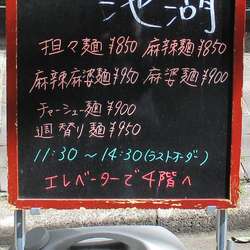 池湖
担々麺¥850 麻辣麺¥850
麻辣麻婆麺¥950 麻婆麺¥900
チャーシュー麺¥900
週替り麺¥950
11:30～14:30(ラストオーダ)
エレベーターで4階へ